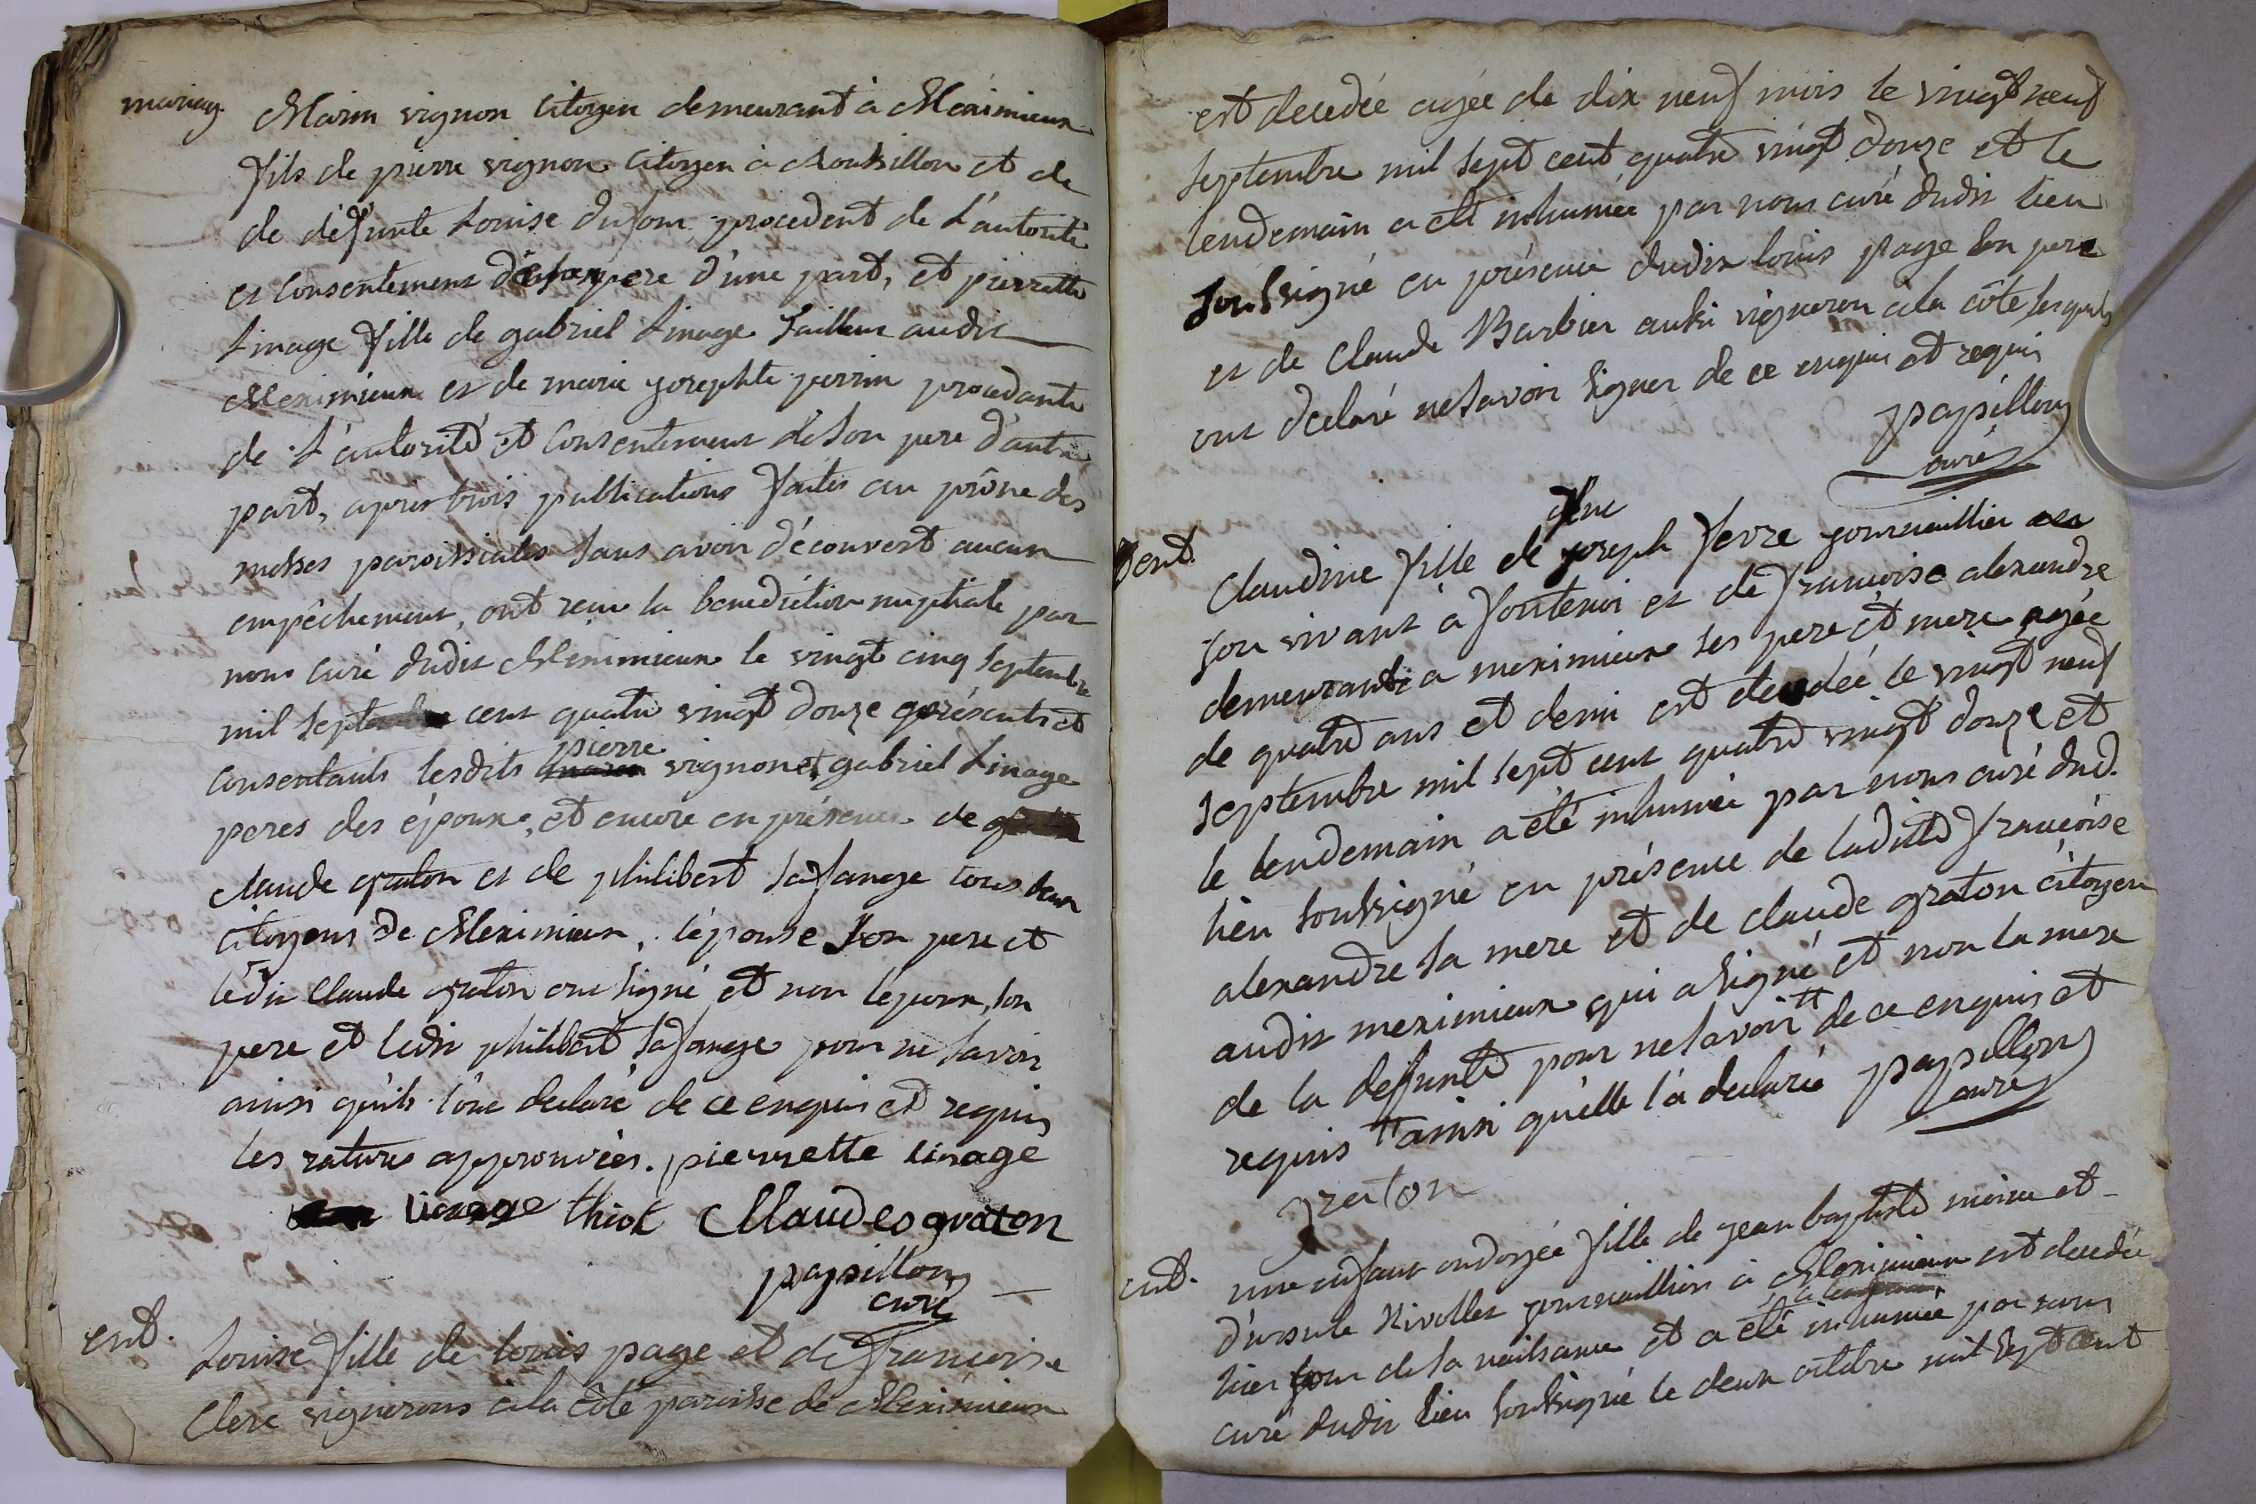 mariag. Marin vignon citoyen demeurant à Meximieux
fils de pierre vignon citoyen à Montillon et de
de défunte Louise dufour procedent de L'autorité
et consentement de son pere d'une part, et pierrette
Linage fille de gabriel Linage tailleur audit
Meximieux et de marie josephte perrin procedante
de L'autorité et consentement de son pere d'autre
part, apres trois publications faites au prône des
messes paroissiales sans avoir découvert aucun
empêchement, ont reçu la benediction nuptiale par
nous curé dudit Meximieux le vingt cinq septembre
mil sept cent quatre vingt douze présents et
consentants lesdits pierre vignon et gabriel Linage
peres des époux, et encore en présence de
claude graton et de philibert lafange tous deux
citoyens de Meximieux, l'épouse son pere et
ledit claude graton ont signé et non l'epoux, son
pere et ledit philibert lafange pour ne savoir
ainsi qu'ils l'ont declaré de ce enquis et requis
les ratures approuvées. pierrette linage
linage thiot Claude graton
papillon
curé
ent. Louise fille de louis page et de francoise
Clerc vignerons à la côte paroisse de Meximieux
est decedée agée de dix neuf mois le vingt neuf
septembre mil sept cent quatre vingt douze et le
lendemain a été inhumée par nous curé dudit lieu
soussigné en présence dudit louis page son pere
et de claude Barbier aussi vigneron à la côte lesquels
ont declaré ne savoir signer de ce enquis et requis
papillon
curé
ent. Claudine fille de feu joseph ferre journaillier
son vivant à fontenoi et de francoise alexandre
demeurant a meximieux ses pere et mere agée
de quatre ans et demi est decedée le vingt neuf
septembre mil sept cent quatre vingt douze et
le lendemain a été inhumée par nous curé dud.
lieu soussigné en présence de laditte francoise
alexandre sa mere et de claude graton citoyen
audit meximieux qui a signé et non la mere
de la deffunte pour ne savoir # de ce enquis et
requis # ainsi qu'elle l'a declaré papillon
curé
graton
ent. une enfant ondoyée fille de jean baptiste moine et
d'ursule Nivollet journailliers à Meximieux est decedée
hier jour de sa naissance et a été inhumée par nous
curé dudit lieu soussigné le deux octobre mil sept cent